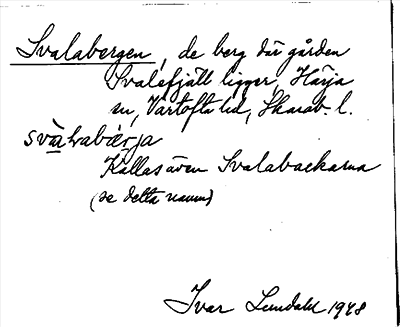 Svalabergen, de berg där gården
Svalefjäll ligger, Härja
sn, Vartofta hd, Skarab. l.
Kallas även Svalabackarna
(se detta namn)
Ivar Lundahl 1948